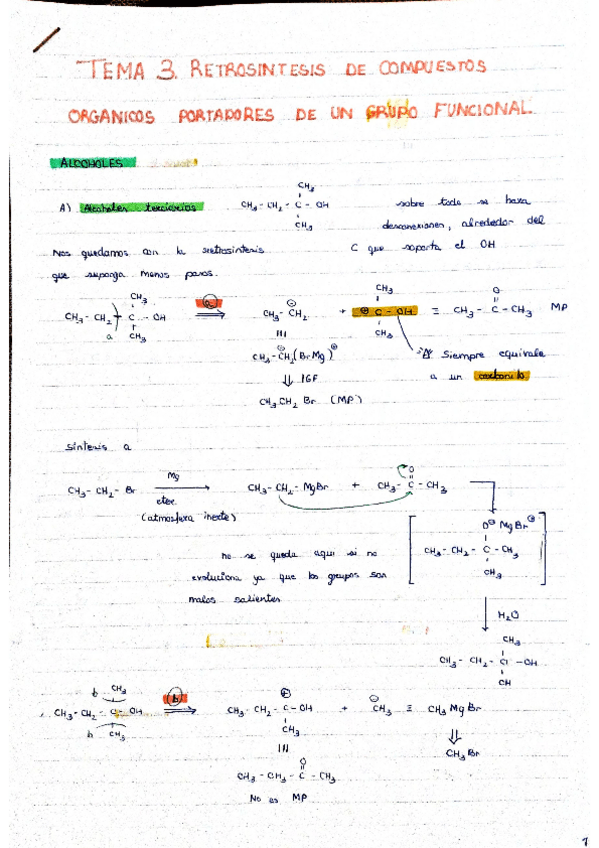 TEMA 3. RETROSINTESIS DE COMPUESTOS
ORGANICOS PORTADORES DE UN GRUPO FUNCIONAL.
ALCOHOLES
A) Alcoholes terciarios
CH3
CH3 - CH2 - C - OH
CH3
sobre todo se hara
desconexiones, alrededor del
C que soporta el OH
Nos quedamos con la retrosintesis
que suponga menos pasos.
CH3
CH3 - CH2 C - OH
CH3
a
a
⇒
⊖
CH3 - CH2
+
CH3
⊕ C - OH
CH3
≡
O
CH3 - C - CH3 MP
CH3 - CH2 (BrMg)⊕
⇓ IGF
CH3 CH2 Br (MP)
Siempre equivale
a un carbonilo
síntesis a
CH3 - CH2 - Br
Mg
eter
(atmosfera inerte)
CH3 - CH2 - MgBr
+
O
CH3 - C - CH3
O⊖ MgBr⊕
CH3 - CH2 - C - CH3
CH3
no se queda aqui si no
evoluciona ya que los grupos son
malos salientes
H2O
CH3
CH3 - CH2 - C - OH
CH
b CH3
CH3 - CH2 C - OH
b CH3
b
⇒
⊕
CH3 - CH2 - C - OH
CH3
+
⊖
CH3 ≡ CH3 MgBr
⇓
CH3Br
O
CH3 - CH2 - C - CH3
No es MP
1